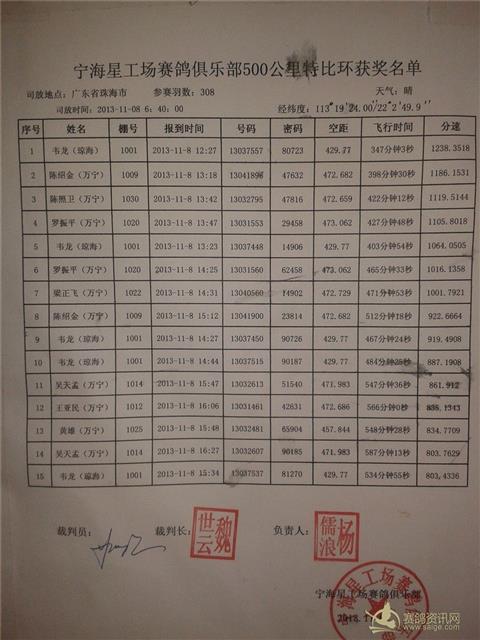 宁海星工场赛鸽俱乐部500公里特比环获奖名单
司放地点: 广东省珠海市 参赛羽数: 308 天气: 晴
司放时间: 2013-11-08 6:40:00 经纬度: 113°19'24.00/22°2'49.9''
序号 姓名 棚号 报到时间 号码 密码 空距 飞行时间 分速
1 韦龙(琼海) 1001 2013-11-8 12:27 13037557 80723 429.77 347分钟3秒 1238.3518
2 陈绍金(万宁) 1009 2013-11-8 13:18 13041896 47632 472.682 398分钟30秒 1186.1531
3 陈照卫(万宁) 1030 2013-11-8 13:42 13032795 47816 472.659 422分钟12秒 1119.5144
4 罗振平(万宁) 1020 2013-11-8 13:47 13031553 29458 473.062 427分钟48秒 1105.8018
5 韦龙(琼海) 1001 2013-11-8 13:23 13037448 14906 429.77 403分钟54秒 1064.0505
6 罗振平(万宁) 1020 2013-11-8 14:25 13031560 62458 473.062 465分钟33秒 1016.1358
7 梁正飞(万宁) 1022 2013-11-8 14:31 13040560 14902 472.729 471分钟53秒 1001.7921
8 陈绍金(万宁) 1009 2013-11-8 15:12 13041900 23814 472.682 512分钟18秒 922.6664
9 韦龙(琼海) 1001 2013-11-8 14:27 13037450 90726 429.77 467分钟24秒 919.4908
10 韦龙(琼海) 1001 2013-11-8 14:44 13037515 90187 429.77 484分钟25秒 887.1908
11 吴天孟(万宁) 1014 2013-11-8 15:47 13032613 51540 471.983 547分钟36秒 861.912
12 王亚民(万宁) 1012 2013-11-8 16:06 13031461 42631 472.686 566分钟0秒 835.1343
13 黄雄(万宁) 1025 2013-11-8 15:48 13032481 65904 457.844 548分钟28秒 834.7709
14 吴天孟(万宁) 1014 2013-11-8 16:27 13032607 90185 471.983 587分钟13秒 803.7629
15 韦龙(琼海) 1001 2013-11-8 15:34 13037537 81270 429.77 534分钟55秒 803.4336
裁判员: 裁判长: 负责人:
世云 魏
儒浪 杨
宁海星工场赛鸽俱乐部
宁海星工场赛鸽俱乐部
赛鸽资讯网
www.saige.com